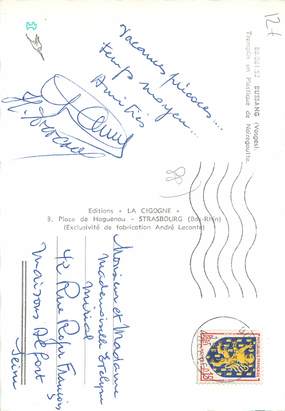 12f
88.081.52 BUSSANG (Vosges)
Tremplin en Plastique de Noiregoutte.
Vacances précoces...
temps moyen...
Amitiés
Editions « LA CIGOGNE »
8, Place de Haguenau - STRASBOURG (Bas-Rhin)
(Exclusivité de fabrication André Leconte)
Monsieur et Madame
Mademoiselle Evelyne
42 Rue Roger François
Maisons Alfort
Seine